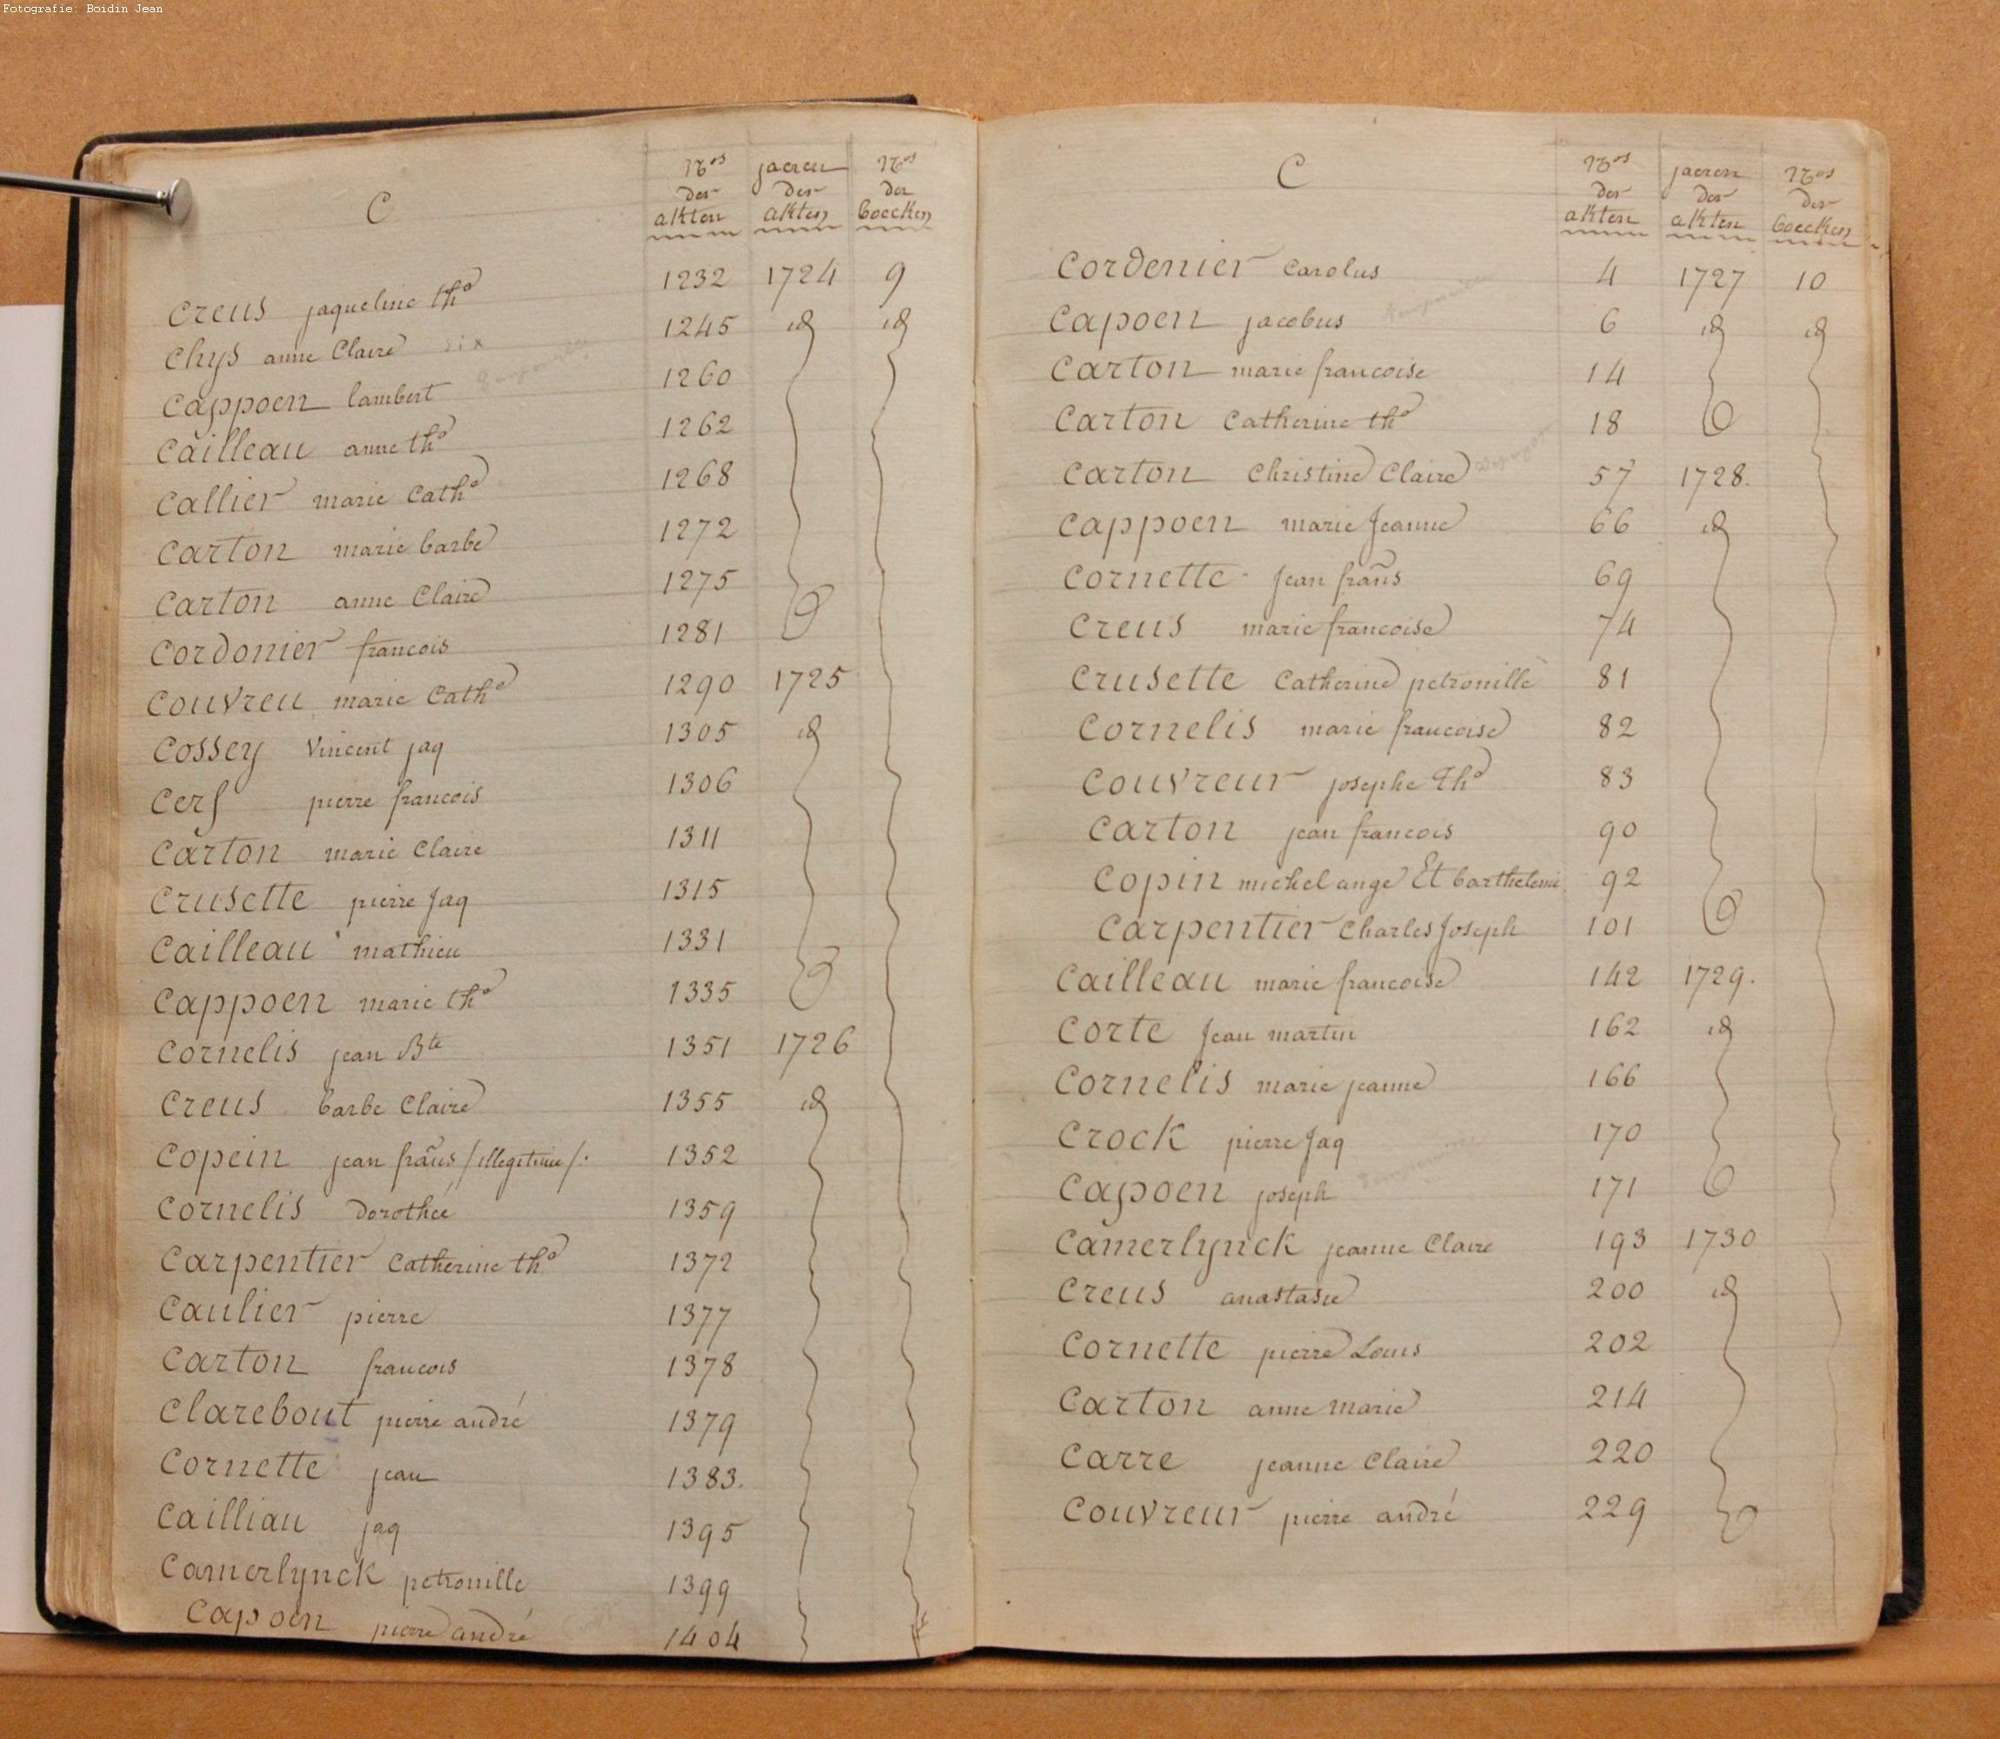 Fotografie: Boidin Jean
C
Nos der akten
jaeren der akten
Nos der boecken
Creus jaqueline tha 1232 1724 9
Chys anne Claire six 1245 id id
Cappoen lambert 1260
Cailleau anne tha 1262
Callier marie Catha 1268
Carton marie barbe 1272
Carton anne Claire 1275
Cordonier francois 1281
Couvreu marie Catha 1290 1725
Cossey Vincent jaq 1305 id
Cerf pierre francois 1306
Carton marie Claire 1311
Crusette pierre Jaq 1315
Cailleau mathieu 1331
Cappoen marie tha 1335
Cornelis jean Bte 1351 1726
Creus barbe Claire 1355 id
Copein jean frañs /illegitime/: 1352
Cornelis Dorothée 1359
Carpentier Catherine tha 1372
Caulier pierre 1377
Carton francois 1378
Clarebout pierre andré 1379
Cornette jean 1383.
Cailliau jaq 1395
Camerlynck petronille 1399
Capoen pierre andré 1404
C
Nos der akten
jaeren der akten
Nos der boecken
Cordenier Carolus 4 1727 10
Capoen jacobus 6 id id
Carton marie francoise 14
Carton Catherine tha 18
Carton Christine Claire 57 1728.
Cappoen marie Jeanne 66 id
Cornette Jean frañs 69
Creus marie francoise 74
Crusette Catherine petronille 81
Cornelis marie francoise 82
Couvreur josephe Tha 83
Carton jean francois 90
Copin michel ange Et barthelemi 92
Carpentier Charles Joseph 101
Cailleau marie francoise 142 1729.
Corte Jean martin 162 id
Cornelis marie jeanne 166
Crock pierre Jaq 170
Capoen joseph 171
Camerlynck jeanne Claire 193 1730
Creus anastasie 200 id
Cornette pierre Louis 202
Carton anne marie 214
Carre jeanne Claire 220
Couvreur pierre andré 229